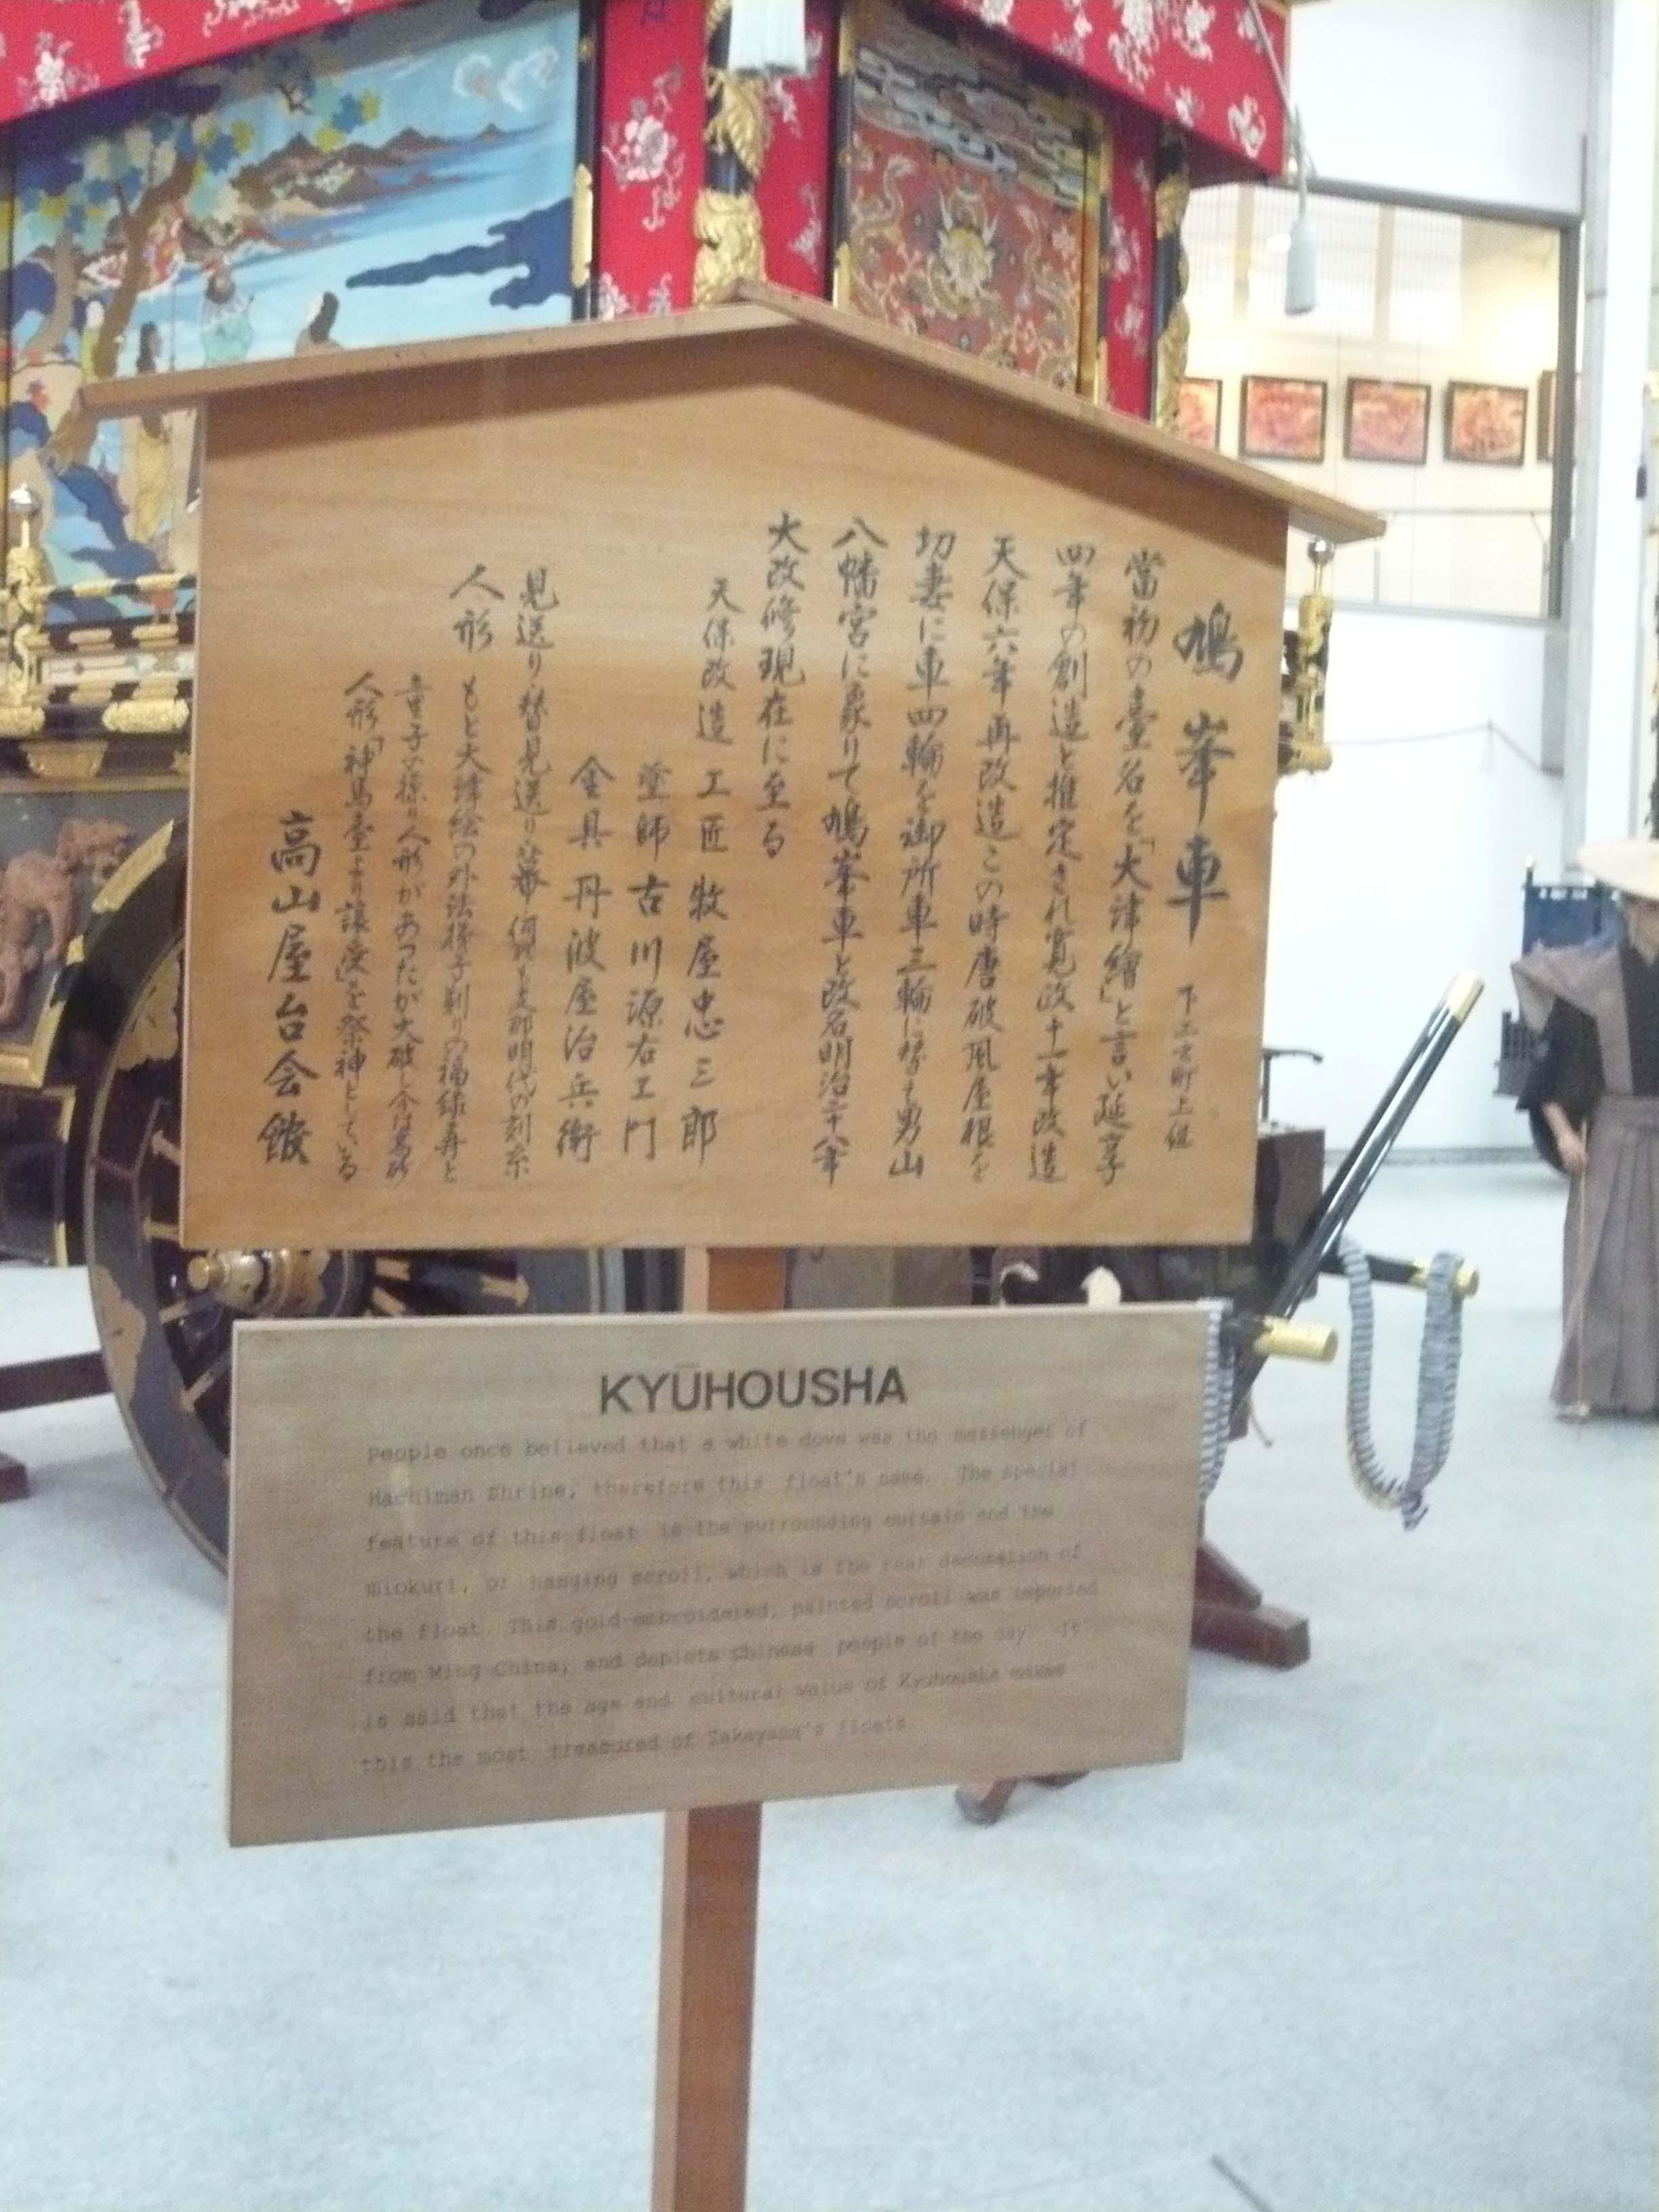 鳩峯車 下三之町上組
當初の臺名を「大津繪」と言い延享
四年の創造と推定され寛政十一年改造
天保六年再改造この時唐破風屋根を
切妻に車四輪を御所車三輪に替え男山
八幡宮に象りて鳩峯車と改名明治二十八年
大改修現在に至る
天保改造 工匠 牧屋忠三郎
塗師 古川源右エ門
金具 丹波屋治兵衛
見送り 替見送り幕何れも支那明代の刻糸
人形 もと大津絵の外法梯子剃りの福禄寿と
童子の操り人形があつたが大破し今は高砂
人形「神馬臺より譲受」を祭神としている
高山屋台会館
KYŪHOUSHA
People once believed that a white dove was the messenger of
Hachiman Shrine, therefore this float's name. The special
feature of this float is the surrounding curtain and the
miokuri, or hanging scroll, which is the rear decoration of
the float. This gold-embroidered, painted scroll was imported
from Ming China, and depicts Chinese people of the day. It
is said that the age and cultural value of Kyuhousha makes
this the most treasured of Takayama's floats.